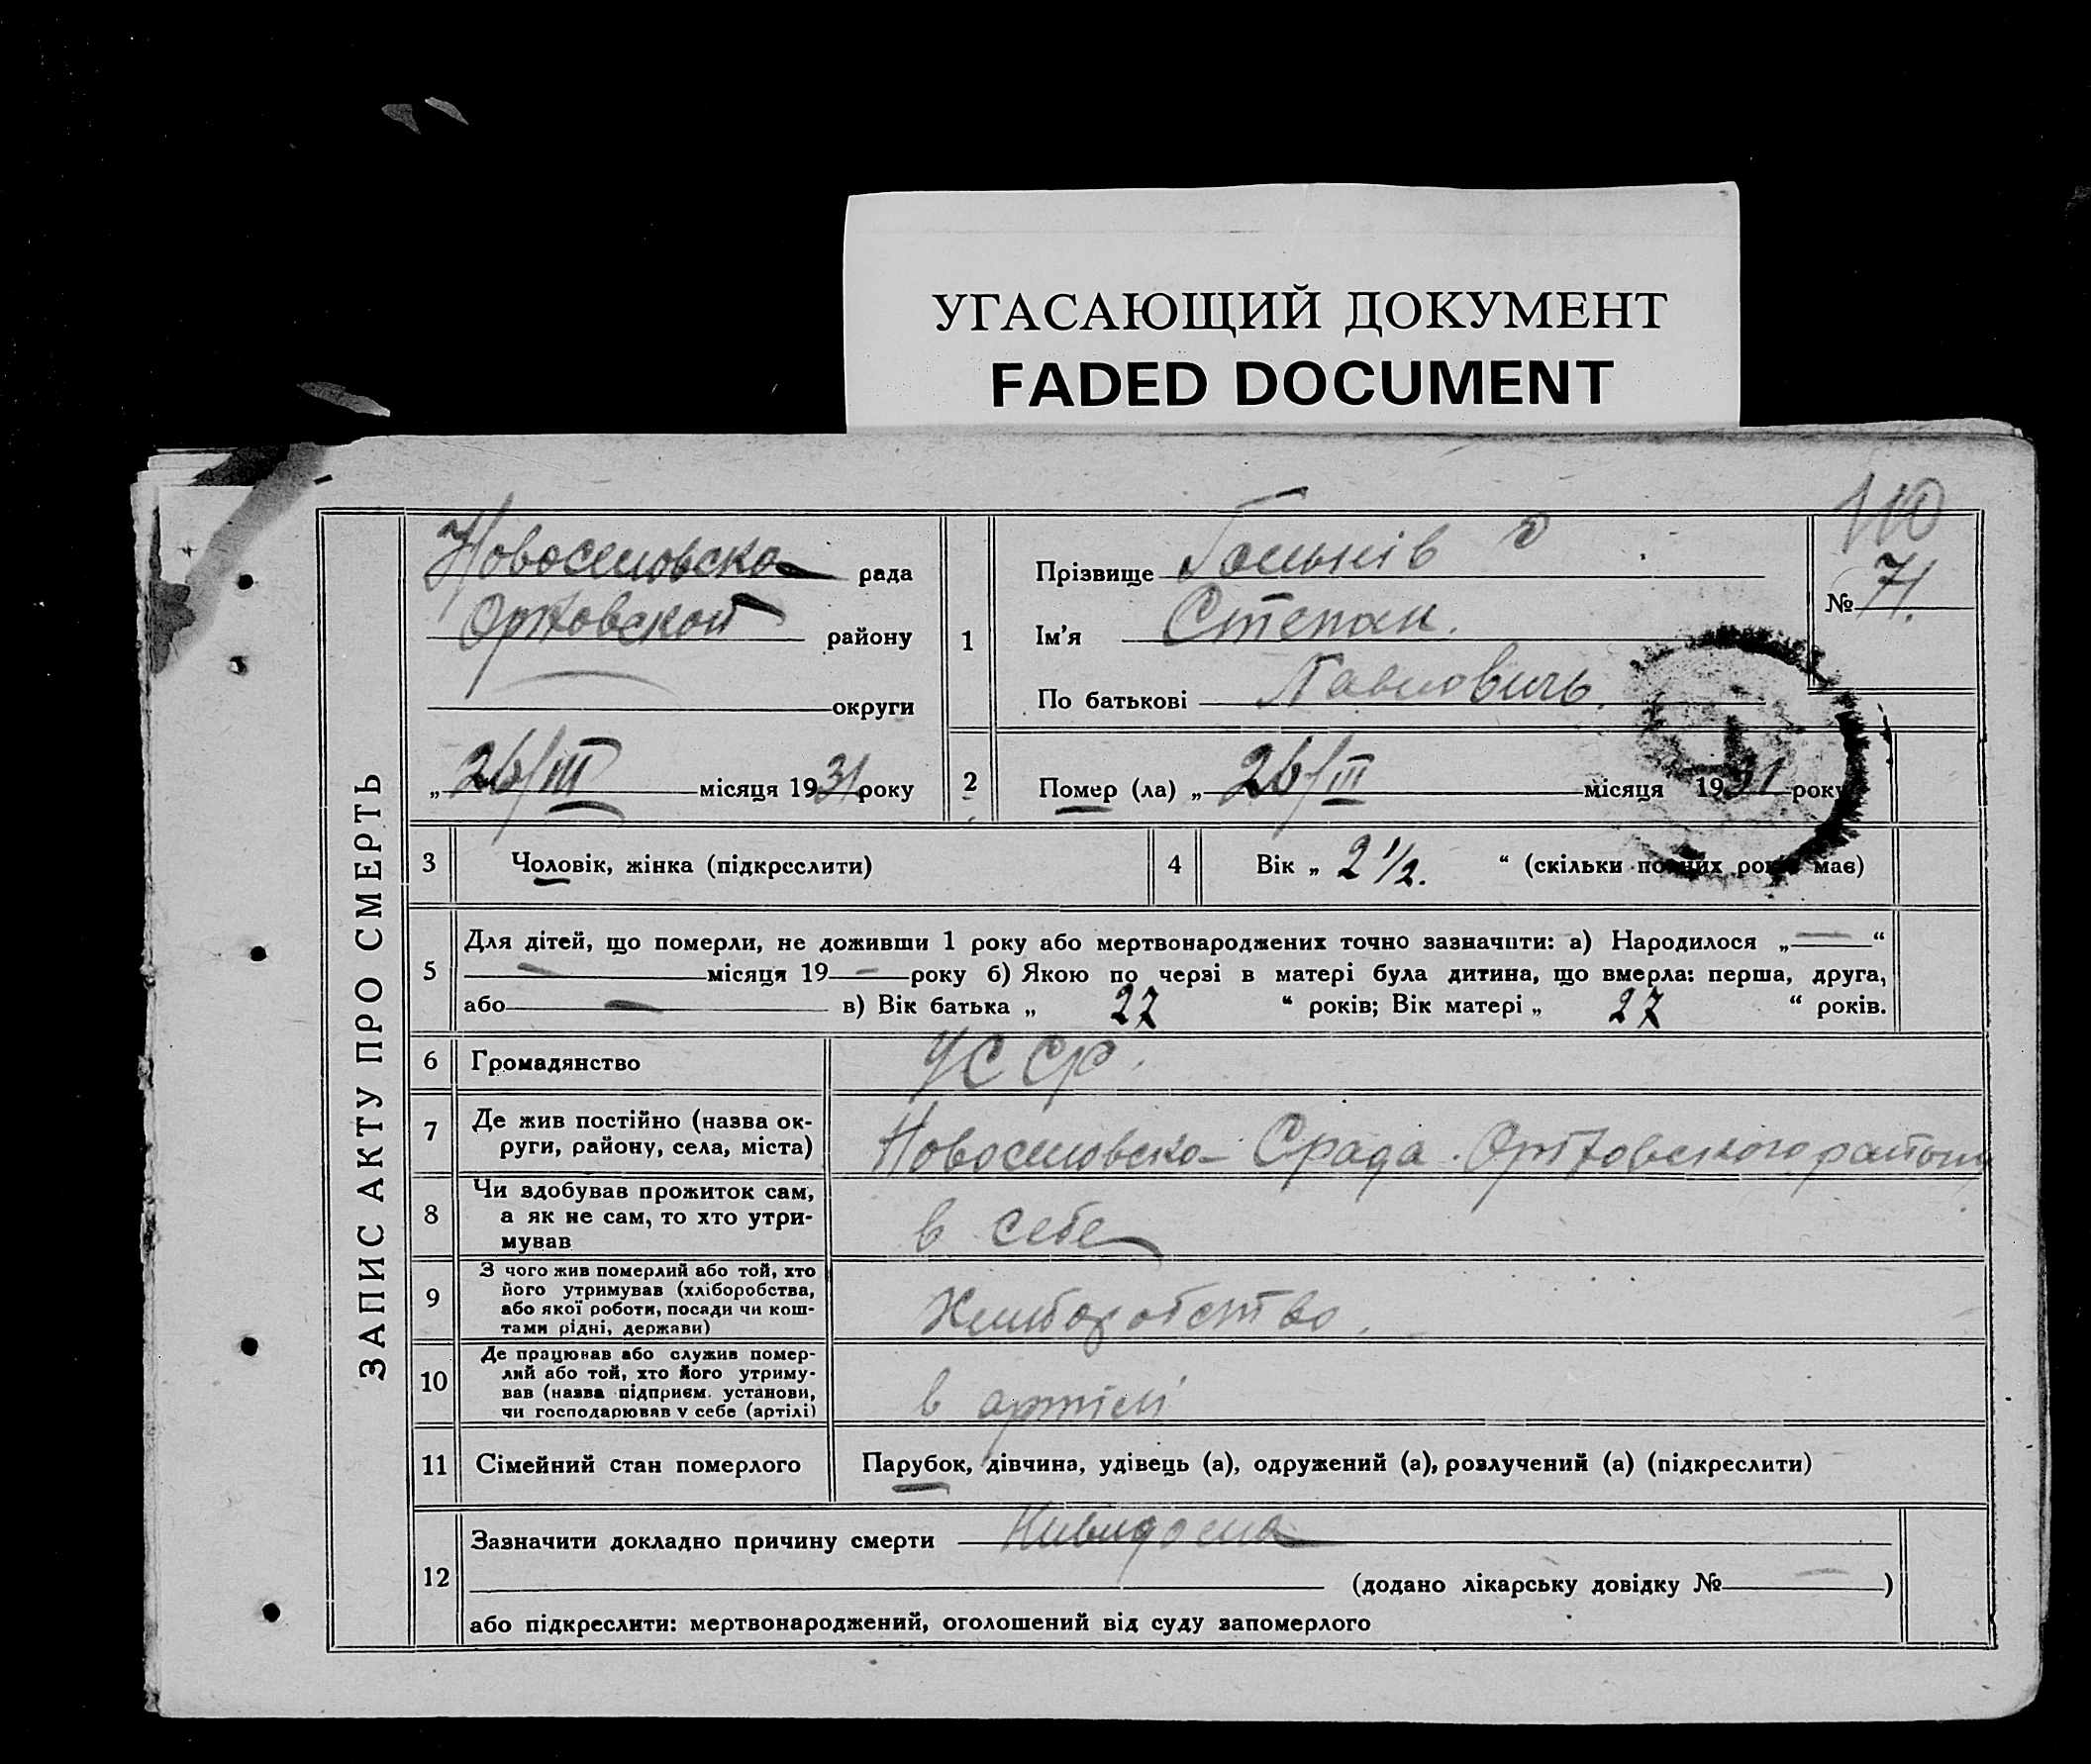 УГАСАЮЩИЙ ДОКУМЕНТ
FADED DOCUMENT
ЗАПИС АКТУ ПРО СМЕРТЬ
Новоселовська рада
районy
округи
„26/III місяця 1931 року
110
№ 71.
1
Прізвище
Ім'я Степан.
По батькові Павловичь.
2
Помер (ла) „26/III місяця 1931 року
3 Чоловік, жінка (підкреслити)
4 Вік „ 2 1/2. “ (скільки повних років має)
5
Для дітей, що померли, не доживши 1 року або мертвонароджених точно зазначити: а) Народилося „ — “
— місяця 19 — року б) Якою по черзі в матері була дитина, що вмерла: перша, друга,
або — в) Вік батька „ 27 “ років; Вік матері „ 27 “ років.
6 Громадянство УССР.
7 Де жив постійно (назва ок-
руги, району, села, міста) Новоселовська Срада.
8 Чи здобував прожиток сам,
а як не сам, то хто утри-
мував
в себе
9 З чого жив померлий або той, хто
його утримував (хліборобства,
або якої роботи, посади чи кош-
тами рідні, держави)
10 Де працював або служив помер-
лий або той, хто його утриму-
вав (назва підприєм. установи,
чи господарював у себе (артілі)
в артілі
11 Сімейний стан померлого Парубок, дівчина, удівець (а), одружений (а), розлучений (а) (підкреслити)
12
Зазначити докладно причину смерти
(додано лікарську довідку № — )
або підкреслити: мертвонароджений, оголошений від суду запомерлого